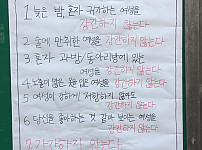 1 늦은 밤, 혼자 귀가하는 여성을
강간하지 않는다
2 술에 만취한 여성을 강간하지 않는다
3 혼자 과방/동아리방에 있는
여성을 강간하지 않는다
4 노출이 많은 옷을 입은 여성을 강간하지 않는다
5 여성이 강하게 저항하지 않아도
강간하지 않는다
6 당신을 좋아하는 것 같아 보이는 여성을
강간하지 않는다
7 강간하지 않는다